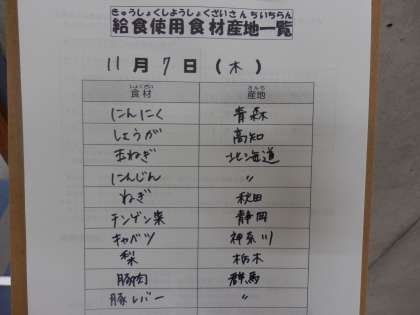 きゅうしょくしようしょくざいさんちいちらん
給食使用食材産地一覧
11月7日(木)
しょくざい さんち
食材 産地
にんにく 青森
しょうが 高知
玉ねぎ 北海道
にんじん 〃
ねぎ 秋田
チンゲン菜 静岡
キャベツ 神奈川
梨 栃木
豚肉 群馬
豚レバー 〃